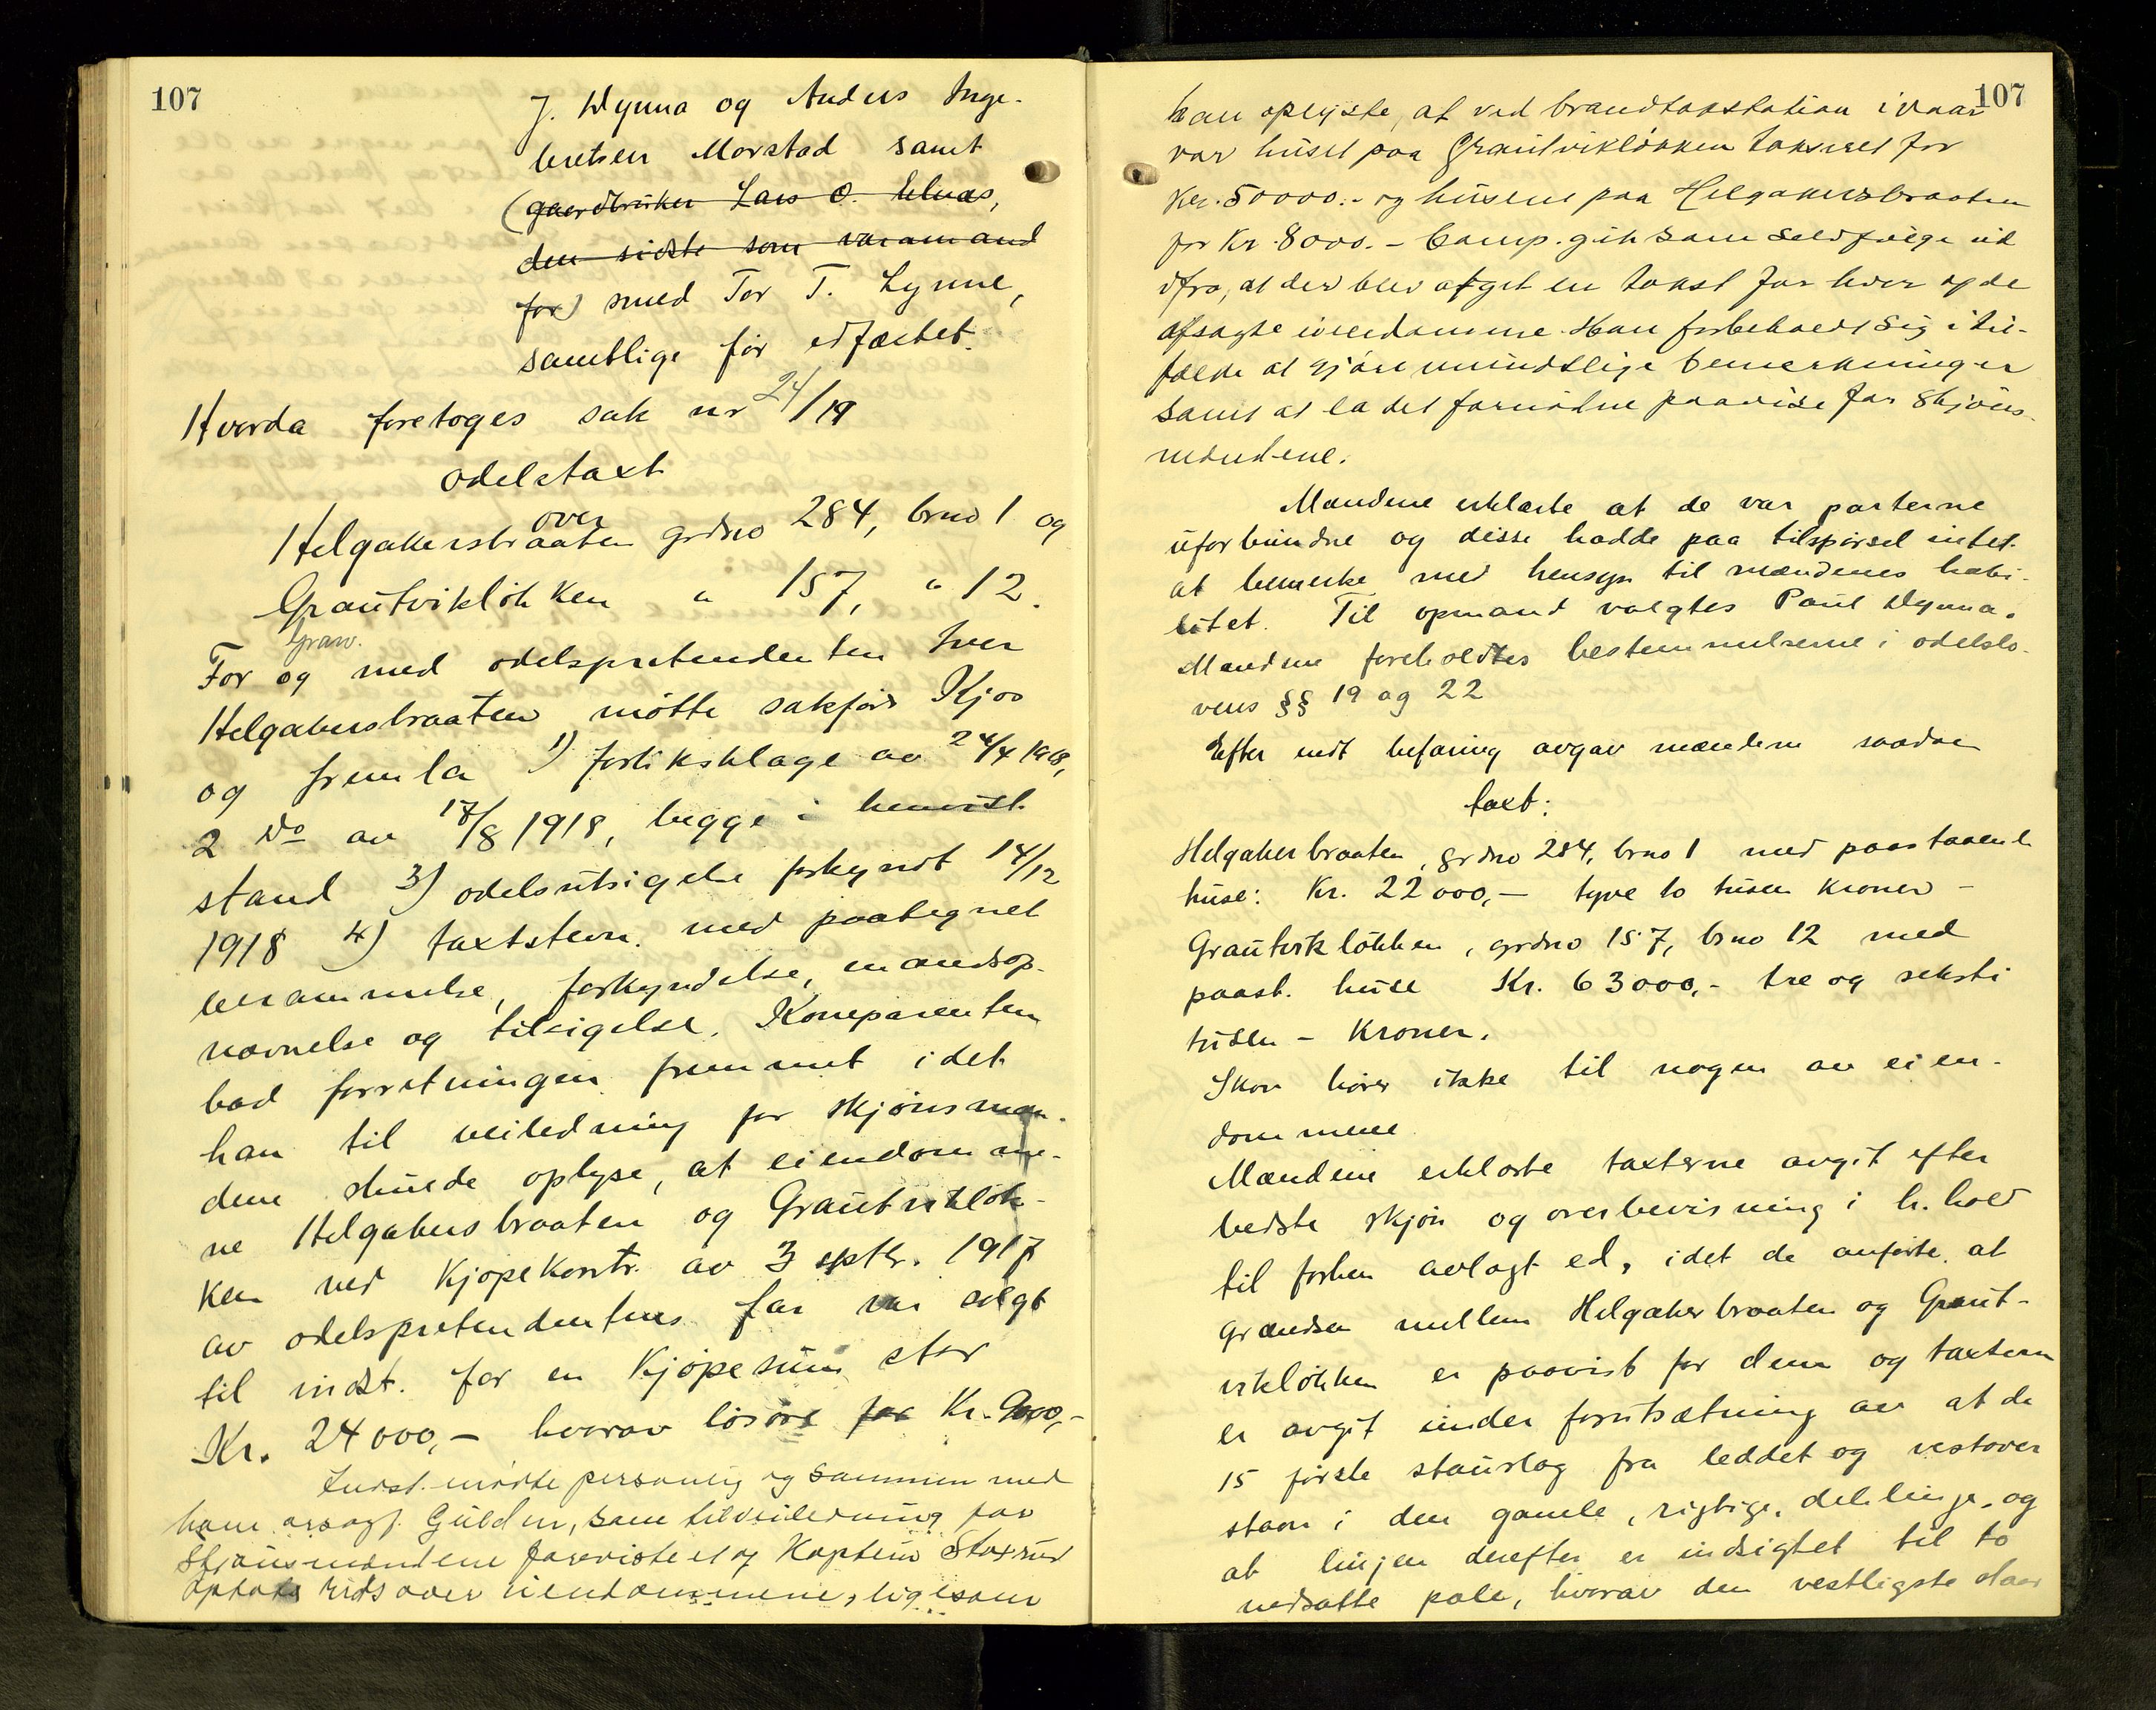 107
J. Dynna og Anders Inge-
bretsen Morstad samt
(gaardbruker Lars O. Elnæs,
den sidste som varamand
for) smed Tor T. Lynne,
samtlige før edfæstet.
Hvorda foretoges sak nr 24/19
odelstaxt
over
Helgakersbraaten grdno 284, brno 1 og
Grautvikløkken " 157, " 12.
For og med odelspretendenten Iver
Helgakersbraaten møtte sakfører Kjos
og fremla 1) forliksklage av 24/4 1918,
2 do av 17/8 1918, begge i henvist
stand 3) odelsutsigelse forkyndt 14/12
1918 4) taxtstevn. med paategnet
berammelse, forkyndelse, mandsop-
nævnelse og tilsigelse. Komparenten
bad forretningen fremmet idet
han til veiledning for skjønsmæn-
dene skulde oplyse, at eiendomme-
ne Helgakersbraaten og Grautvikløk-
ken ved Kjøpekontr. av 3 septbr. 1917
av odelspretendentens far var solgt
til indst. for en Kjøpesum stor
Kr. 24000,- hvorav løsøre for Kr. 9000,-
Indst. mødte personlig og sammen med
ham orsagf. Gulden, som til veiledning for
Skjønsmændene foreviste et af Kaptein Stoxrud
optat rids over eiendommene, ligesom
107
han oplyste, at ved brandtakstation ivaar
var huset paa Grautvikløkken takseret for
Kr. 50000.- og husene paa Helgakersbraaten
for Kr. 8000.- Comp. gik som selvfølge ud
ifra, at der blev afgit en takst for hver af de
afsagte eiendomme. Han forbeholdt sig i til-
fælde at gjøre mundtlige bemerkninger
samt at la det fornødne paavise for Skjøns-
mændene.
Mændene erklærte at de var parterne
uforbundne og disse hadde paa tilspørsel intet
at bemerke med hensyn til mændenes habi-
litet. Til opmand valgtes Paul Dynna.
Mændene foreholdtes bestemmelserne i odelslo-
vens §§ 19 og 22
Efter endt befaring avgav mændene saadan
taxt:
Helgakerbraaten, grdno 284, brno 1 med paastaaende
huse: Kr. 22000,- tyve to tusen kroner -
Grautvikløkken, grdno 157, brno 12 med
paast. huse Kr. 63000,- tre og seksti
tusen - Kroner.
Skov hører ikke til nogen av eien-
dommene.
Mændene erklærte taxterne avgit efter
bedste skjøn og overbevisning i h. hold
til forhen avlagt ed, idet de anførte at
grændsen mellem Helgakerbraaten og Graut-
vikløkken er paavist for dem og taxterne
er avgit under forutsætning av at de
15 første staurlag fra leddet og vestover
staar i den gamle, rigtige, delelinje, og
at linjen derefter er indsigtet til to
nedsatte pæle, hvorav den vestligste staar